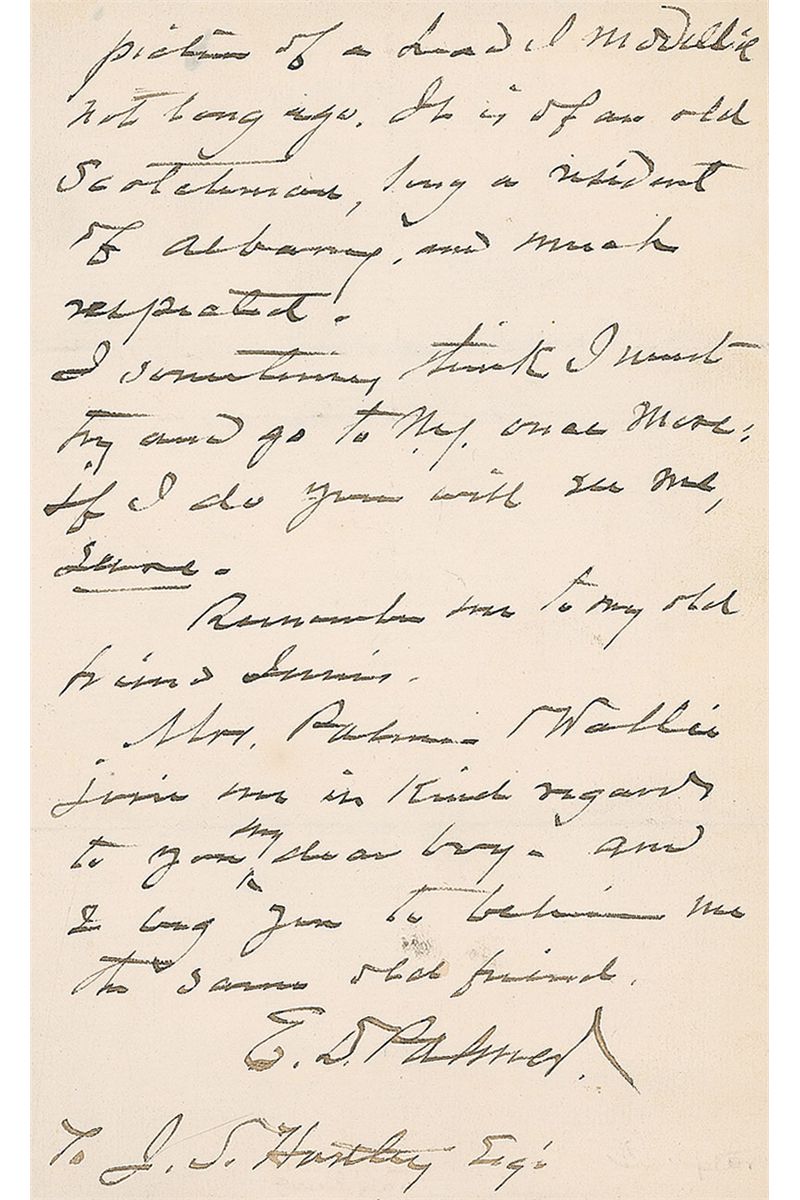 picture of a head I modelled
not long ago. It is of an old
Scotchman, long a resident
of Albany, and much
respected.
I sometimes think I must
try and go to N.Y. once more;
if I do you will see me,
sure.
Remember me to my old
friend Innis.
Mrs. Palmer & Wallie
join me in kind regards
to you my dear boy. and
I beg you to believe me
the same old friend.
E. D. Palmer.
To J. S. Hartley Esq: